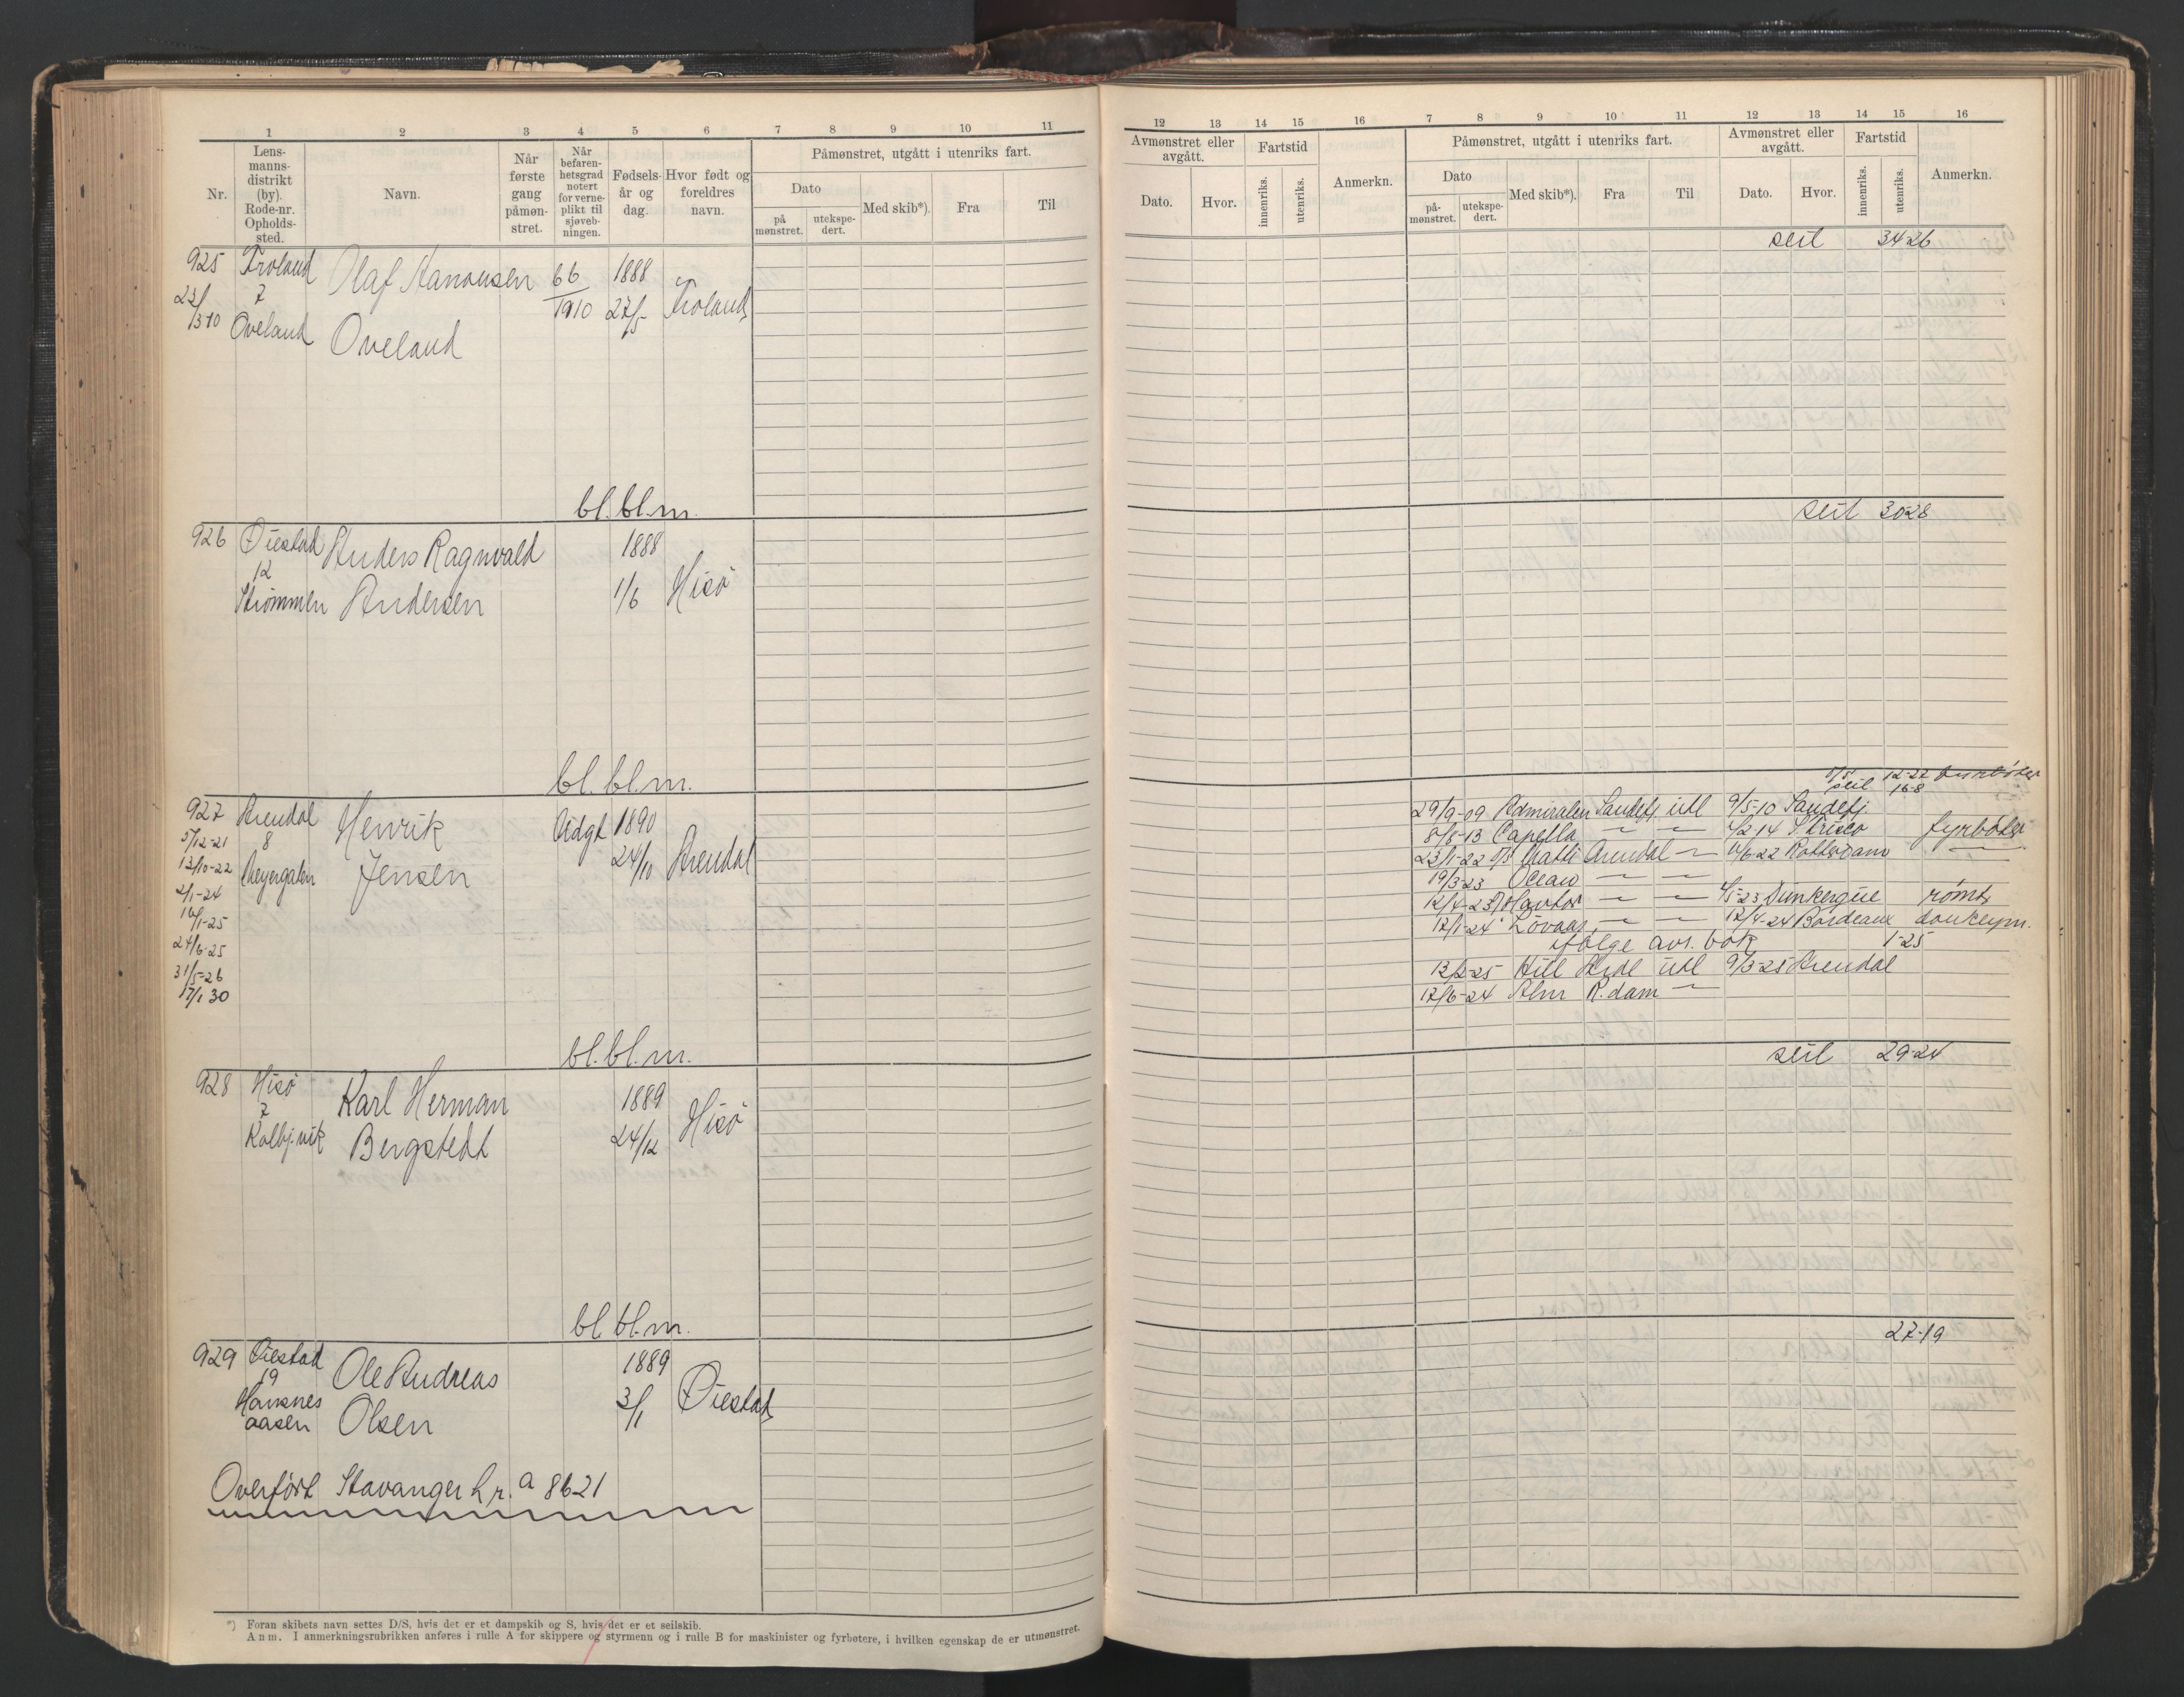 1 2 3 4 5 6 7 8 9 10 11
Nr. Lensmannsdistrikt (by). Rode-nr. Opholdssted. Navn. Når første gang påmønstret. Når befarenhetsgrad notert for verneplikt til sjøvebningen. Fødselsår og dag. Hvor født og foreldres navn. Påmønstret, utgått i utenriks fart.
Dato på mønstret. utekspedert. Med skib*). Fra Til
925 Froland Olaf 66 1888
23/3 10 7 1910 27/5 Froland
Oveland Oveland
bl. bl. m.
926 Øiestad Anders Ragnvald 1888
12 1/6 Hisö
Strömmen Andersen
bl. bl. m.
927 Arendal Henrik Udgt 1890
5/12-21 8 24/10 Arendal
13/10-22 Jensen
2/1-24
16/1-25
24/6-25
31/5-26
17/1 30
bl. bl. m.
928 Hisö Karl Herman 1889
7 24/12 Hisö
Kolbj.vik Bergstedt
bl. bl. m.
929 Øiestad Ole Andreas 1889
19 3/1 Øiestad
aasen Olsen
Overfört Stavanger h. r. a 8621
*) Foran skibets navn settes D/S, hvis det er et dampskib og S, hvis det er et seilskib.
Anm. I anmerkningsrubrikken anføres i rulle A for skippere og styrmenn og i rulle B for maskinister og fyrbøtere, i hvilken egenskap de er utmønstret.
12 13 14 15 16 7 8 9 10 11 12 13 14 15 16
Avmønstret eller avgått. Fartstid Anmerkn. Påmønstret, utgått i utenriks fart. Avmønstret eller avgått. Fartstid Anmerkn.
Dato. Hvor. innenriks. utenriks. Dato påmønstret. utekspedert. Med skib*). Fra Til Dato. Hvor. innenriks. utenriks.
seil 34-26
seil 30-28
D/S 12-22
seil 16-8
29/9-09 Admiralen Sandefj. utl 9/5-10 Sandefj.
8/8-13 Capella — — 4/2 14 fyrböter
23/1-22 D/S Arendal — 11/6-22 Rotterdam —
19/3-23 Ocean — —
12/4-23 — — Dunkerque römt
17/1-24 Lovaas — — 12/4-24 Bordeaux donkeym.
ifölge avr. bok 1-25
12/2-25 utl 9/3-25 Arendal
17/6-24 Alm R.dam —
seil 29-24
27-19